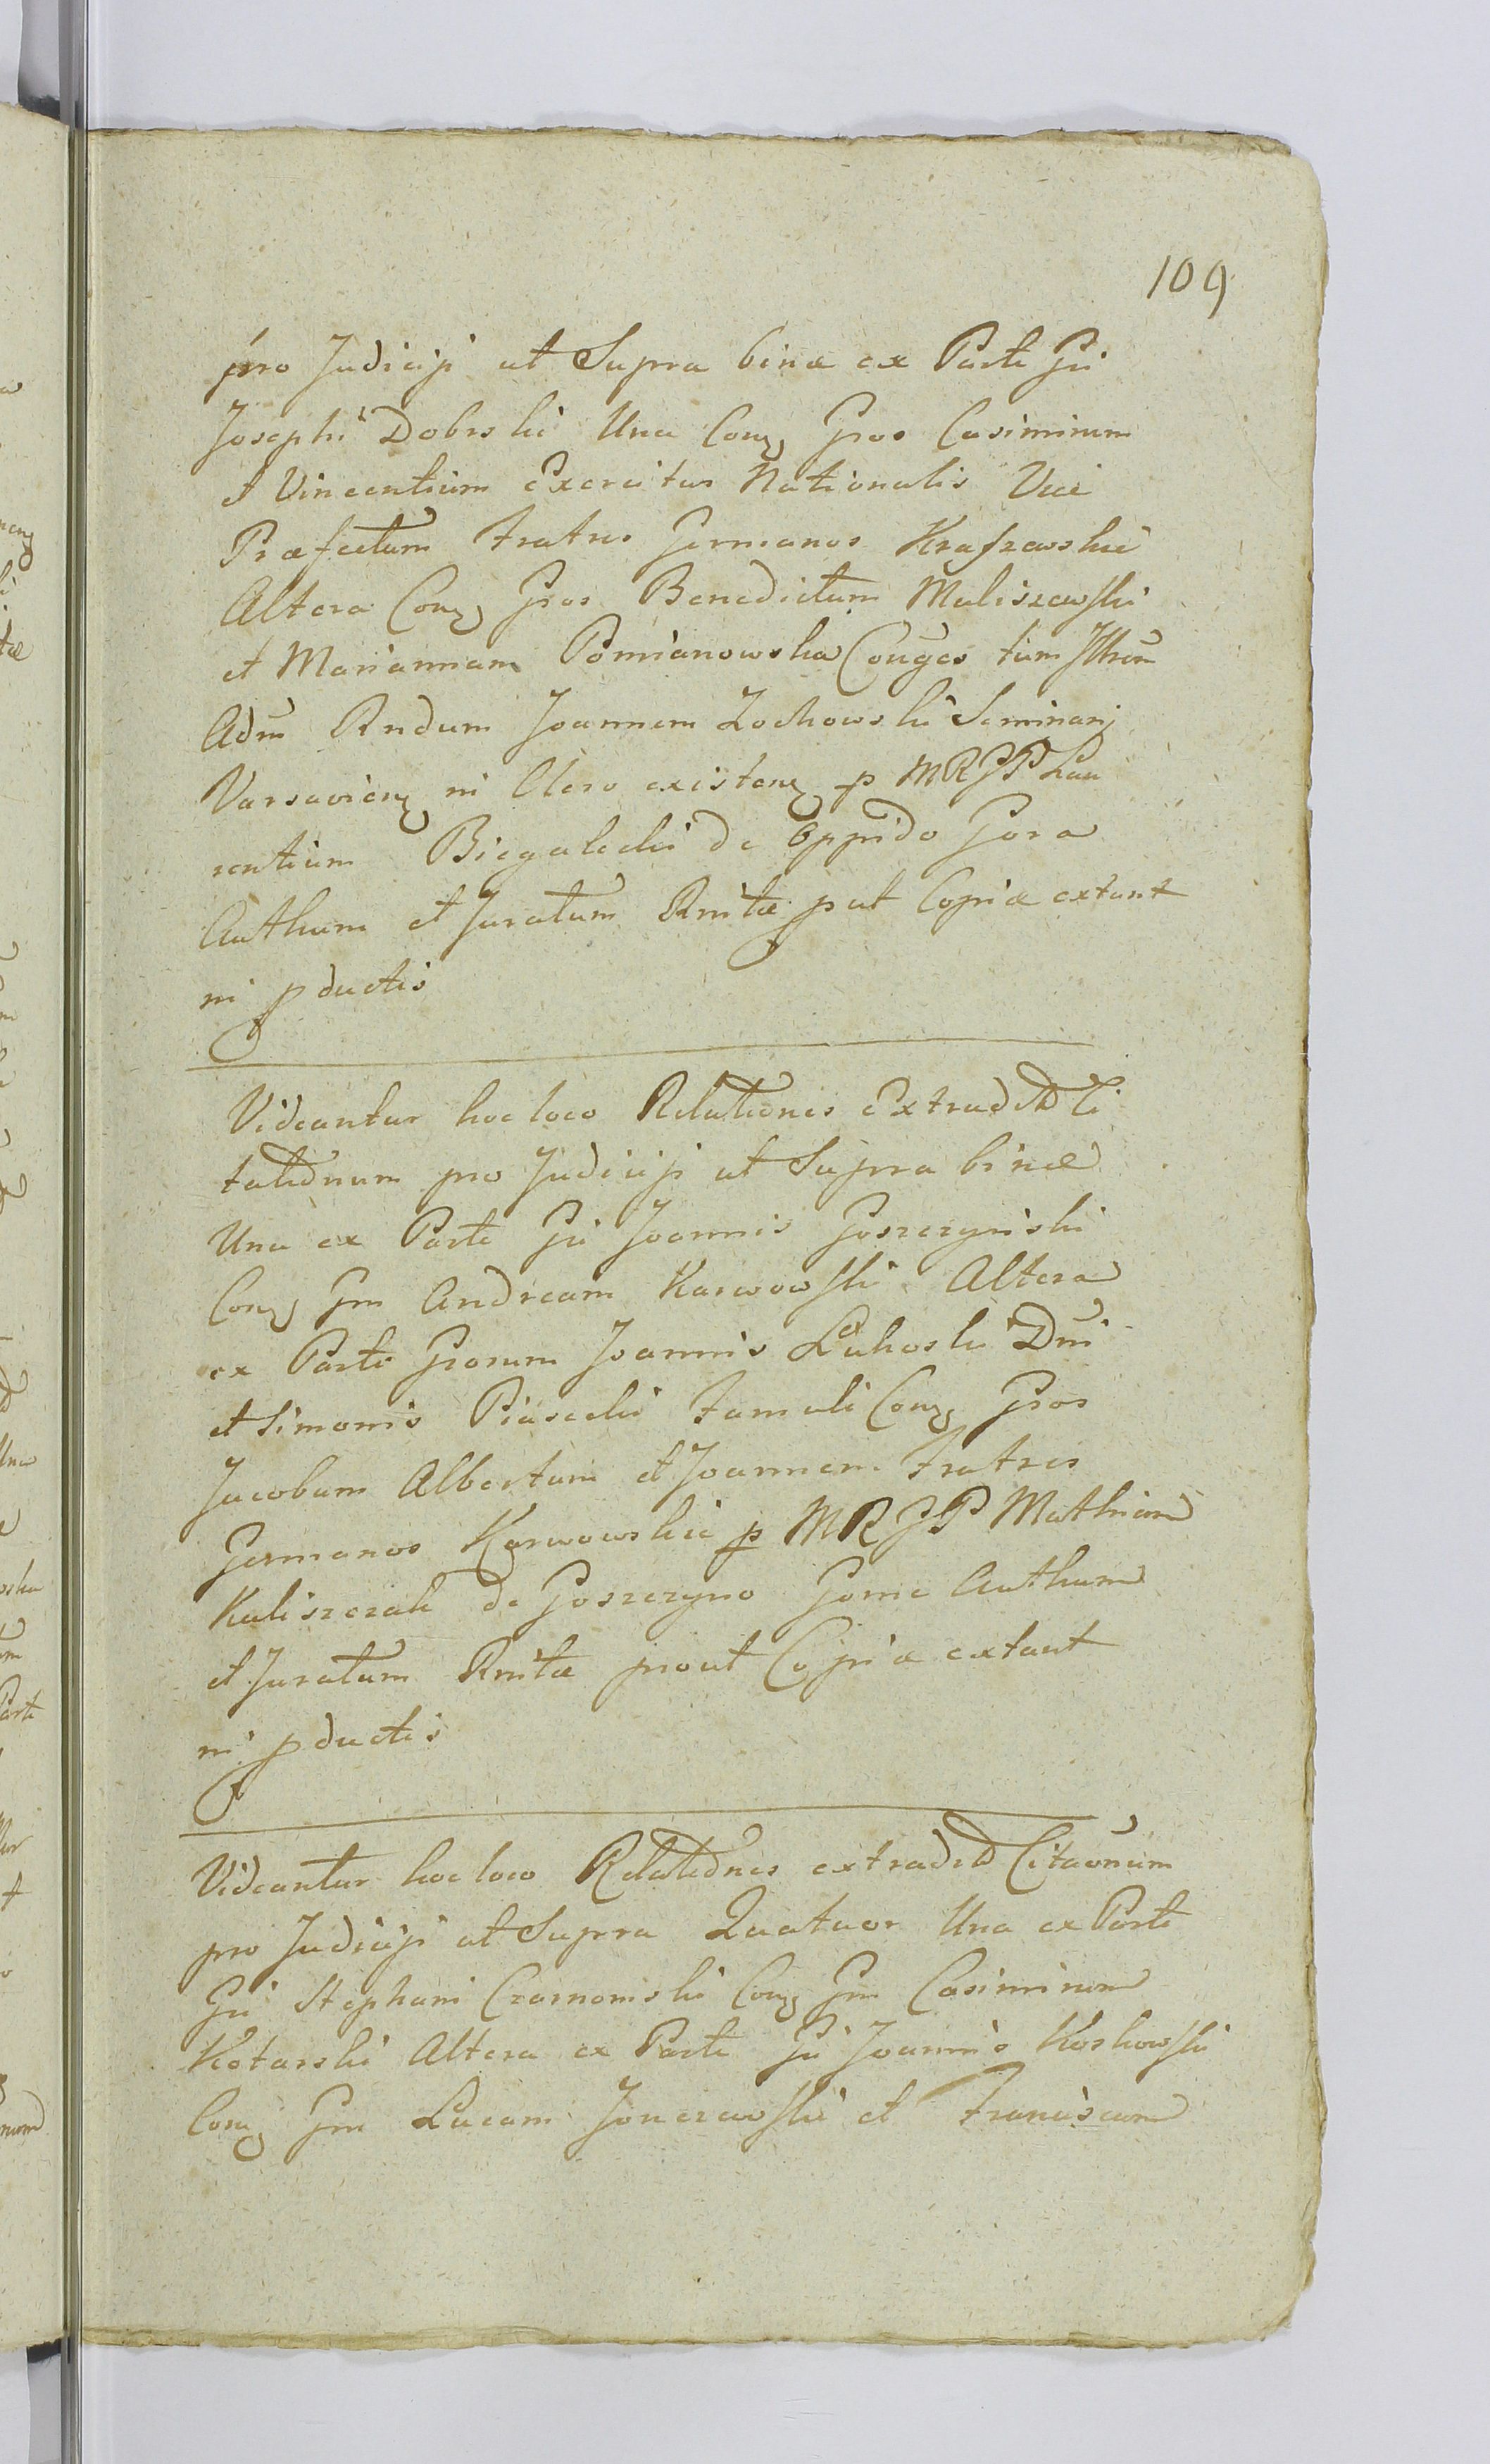 109
pro Judicij ut Supra binæ ex Parte Gī
Josephi Dobrski Una Conẓ Gros Casimirum
et Vincentium Exercitus Nationalis Vice
Præfectum Fratres Germanos Krajewskie
Altera Conẓ Gros Benedictum Maliszewski
et Mariannam Pomianowska Conḡes tum Illrem
Adm̄ Rndum Joannem Zochowski Seminarij
Varsavienẓ in Clero existenẓ p MRGP Lau
rentium Biegalecki de Oppido Gora
Authum et Juratum Rnitæ put Copiæ extant
in pductis
Videantur hoc loco Relationes Extradit Ci
tationum pro Judicij ut Supra binæ
Una ex Parte Gī Joannis Goszczynski
Conẓ Gm Andream Karwowski Altera
ex Parte Grorum Joannis Łukoski Dn̄i
et Simonis Piasecki Famuli Conẓ Gros
Jacobum Albertum et Joannem Fratres
Germanos Karwowskie p MRGP Mathiam
Kaliszczak de Goszczyno Gorne Authum
et Juratum Rnitæ prout Copiæ extant
in pductis
Videantur hoc loco Relationes extradit Citaōnum
pro Judicij ut Supra Quatuor Una ex Parte
Gī Stephani Czarnomski Conẓ Gm Casimirum
Kotarski Altera ex Parte Gī Joannis Koskowski
Conẓ Gm Lucam Jonczewski et Franciscum